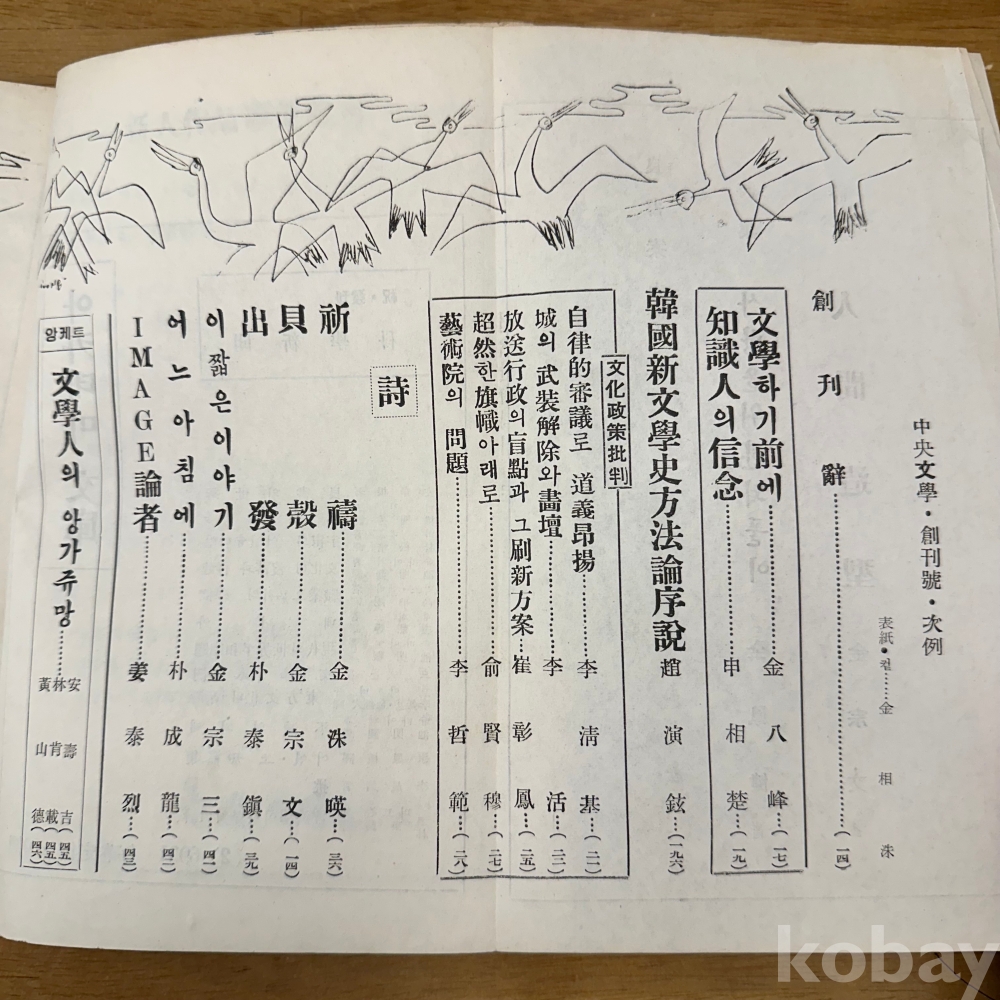 中央文學·創刊號·次例
表紙·컽……金相洙
創刊辭………(一四)
文學하기前에………金八峰…(一七)
知識人의信念………申相楚…(一九)
韓國新文學史方法論序說……趙演鉉…(一九六)
文化政策批判
自律的審議로 道義昻揚………李淸基…(二一)
城의 武裝解除와 畵壇………李活…(二三)
放送行政의盲點과 그刷新方案…崔彰鳳…(二五)
超然한旗幟아래로………兪賢穆…(二七)
藝術院의 問題………李哲範…(二八)
詩
祈禱………金洙暎…(三六)
貝殼………金宗文…(一四)
出發………朴泰鎭…(三九)
이 짧은이야기………金宗三…(四一)
어느아침에………朴成龍…(四二)
IMAGE論者………姜泰烈…(四三)
앙케트
文學人의 앙가쥬망………
安壽吉(四五)
林肯載(四五)
黃山德(四六)
kobay